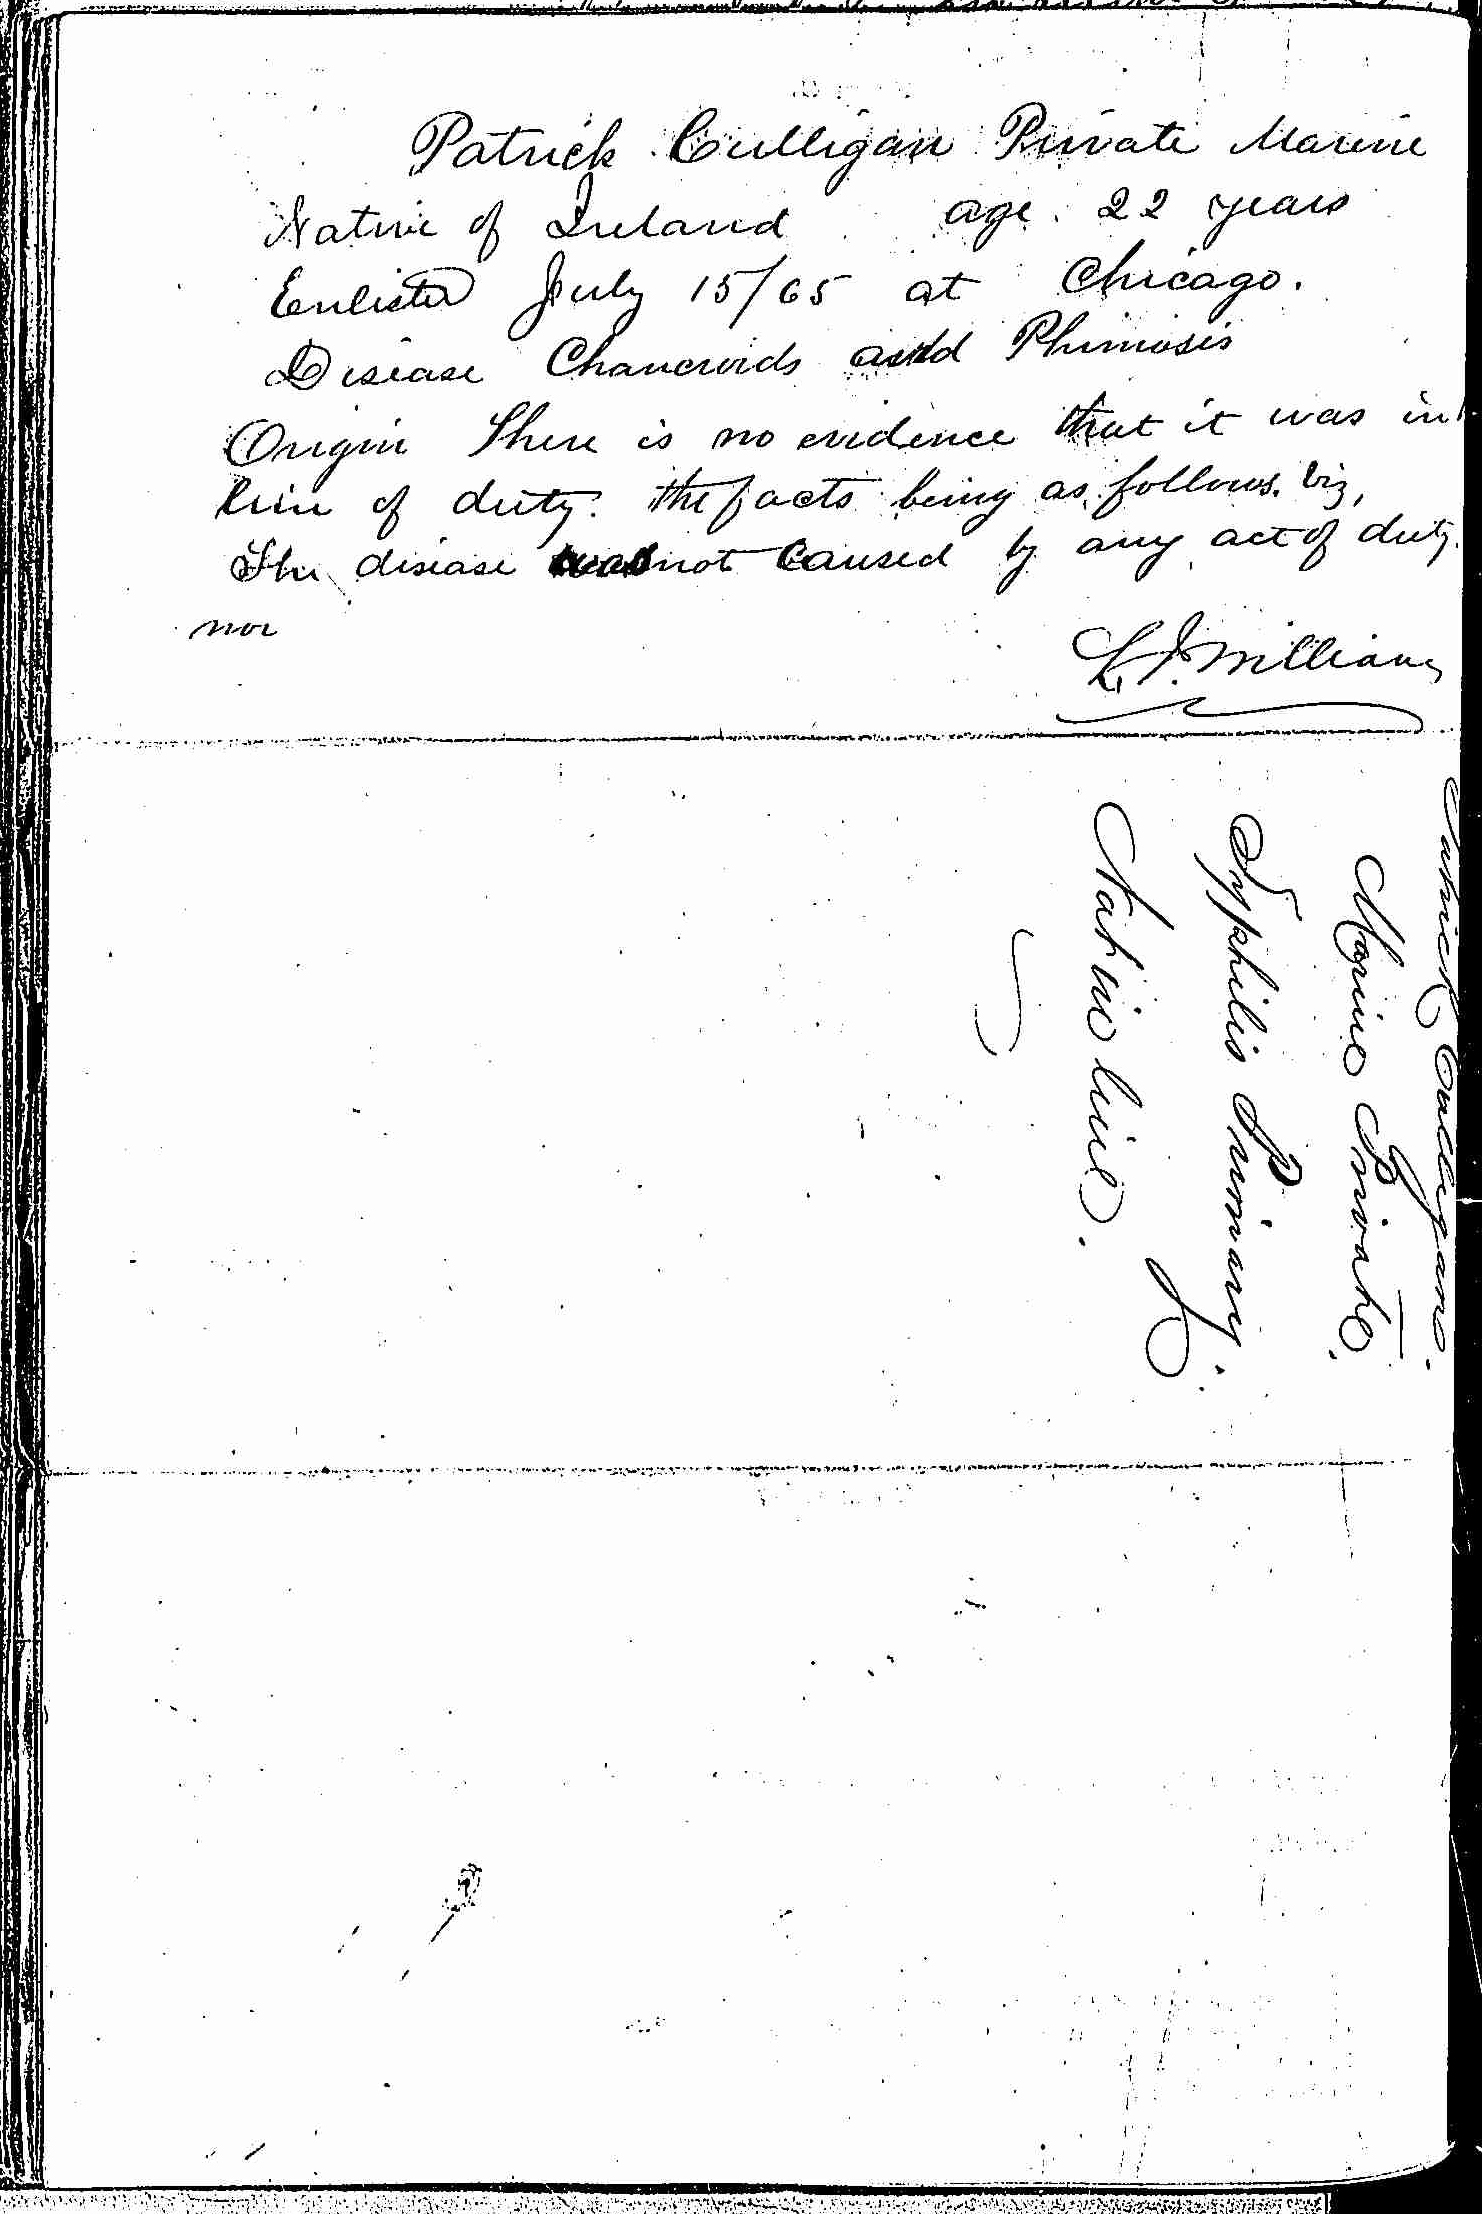 Patrick Culligan Private Marine
Native of Ireland age. 22 years
Enlisted July 15/65 at Chicago.
Disease Chancroids and Phimosis
Origin There is no evidence that it was in
line of duty. the facts being as follows. viz,
The disease was not caused by any act of duty.
nor
L. J. Williams
Patrick Culligan.
Marine Private.
Syphilis Primary.
Not in line.